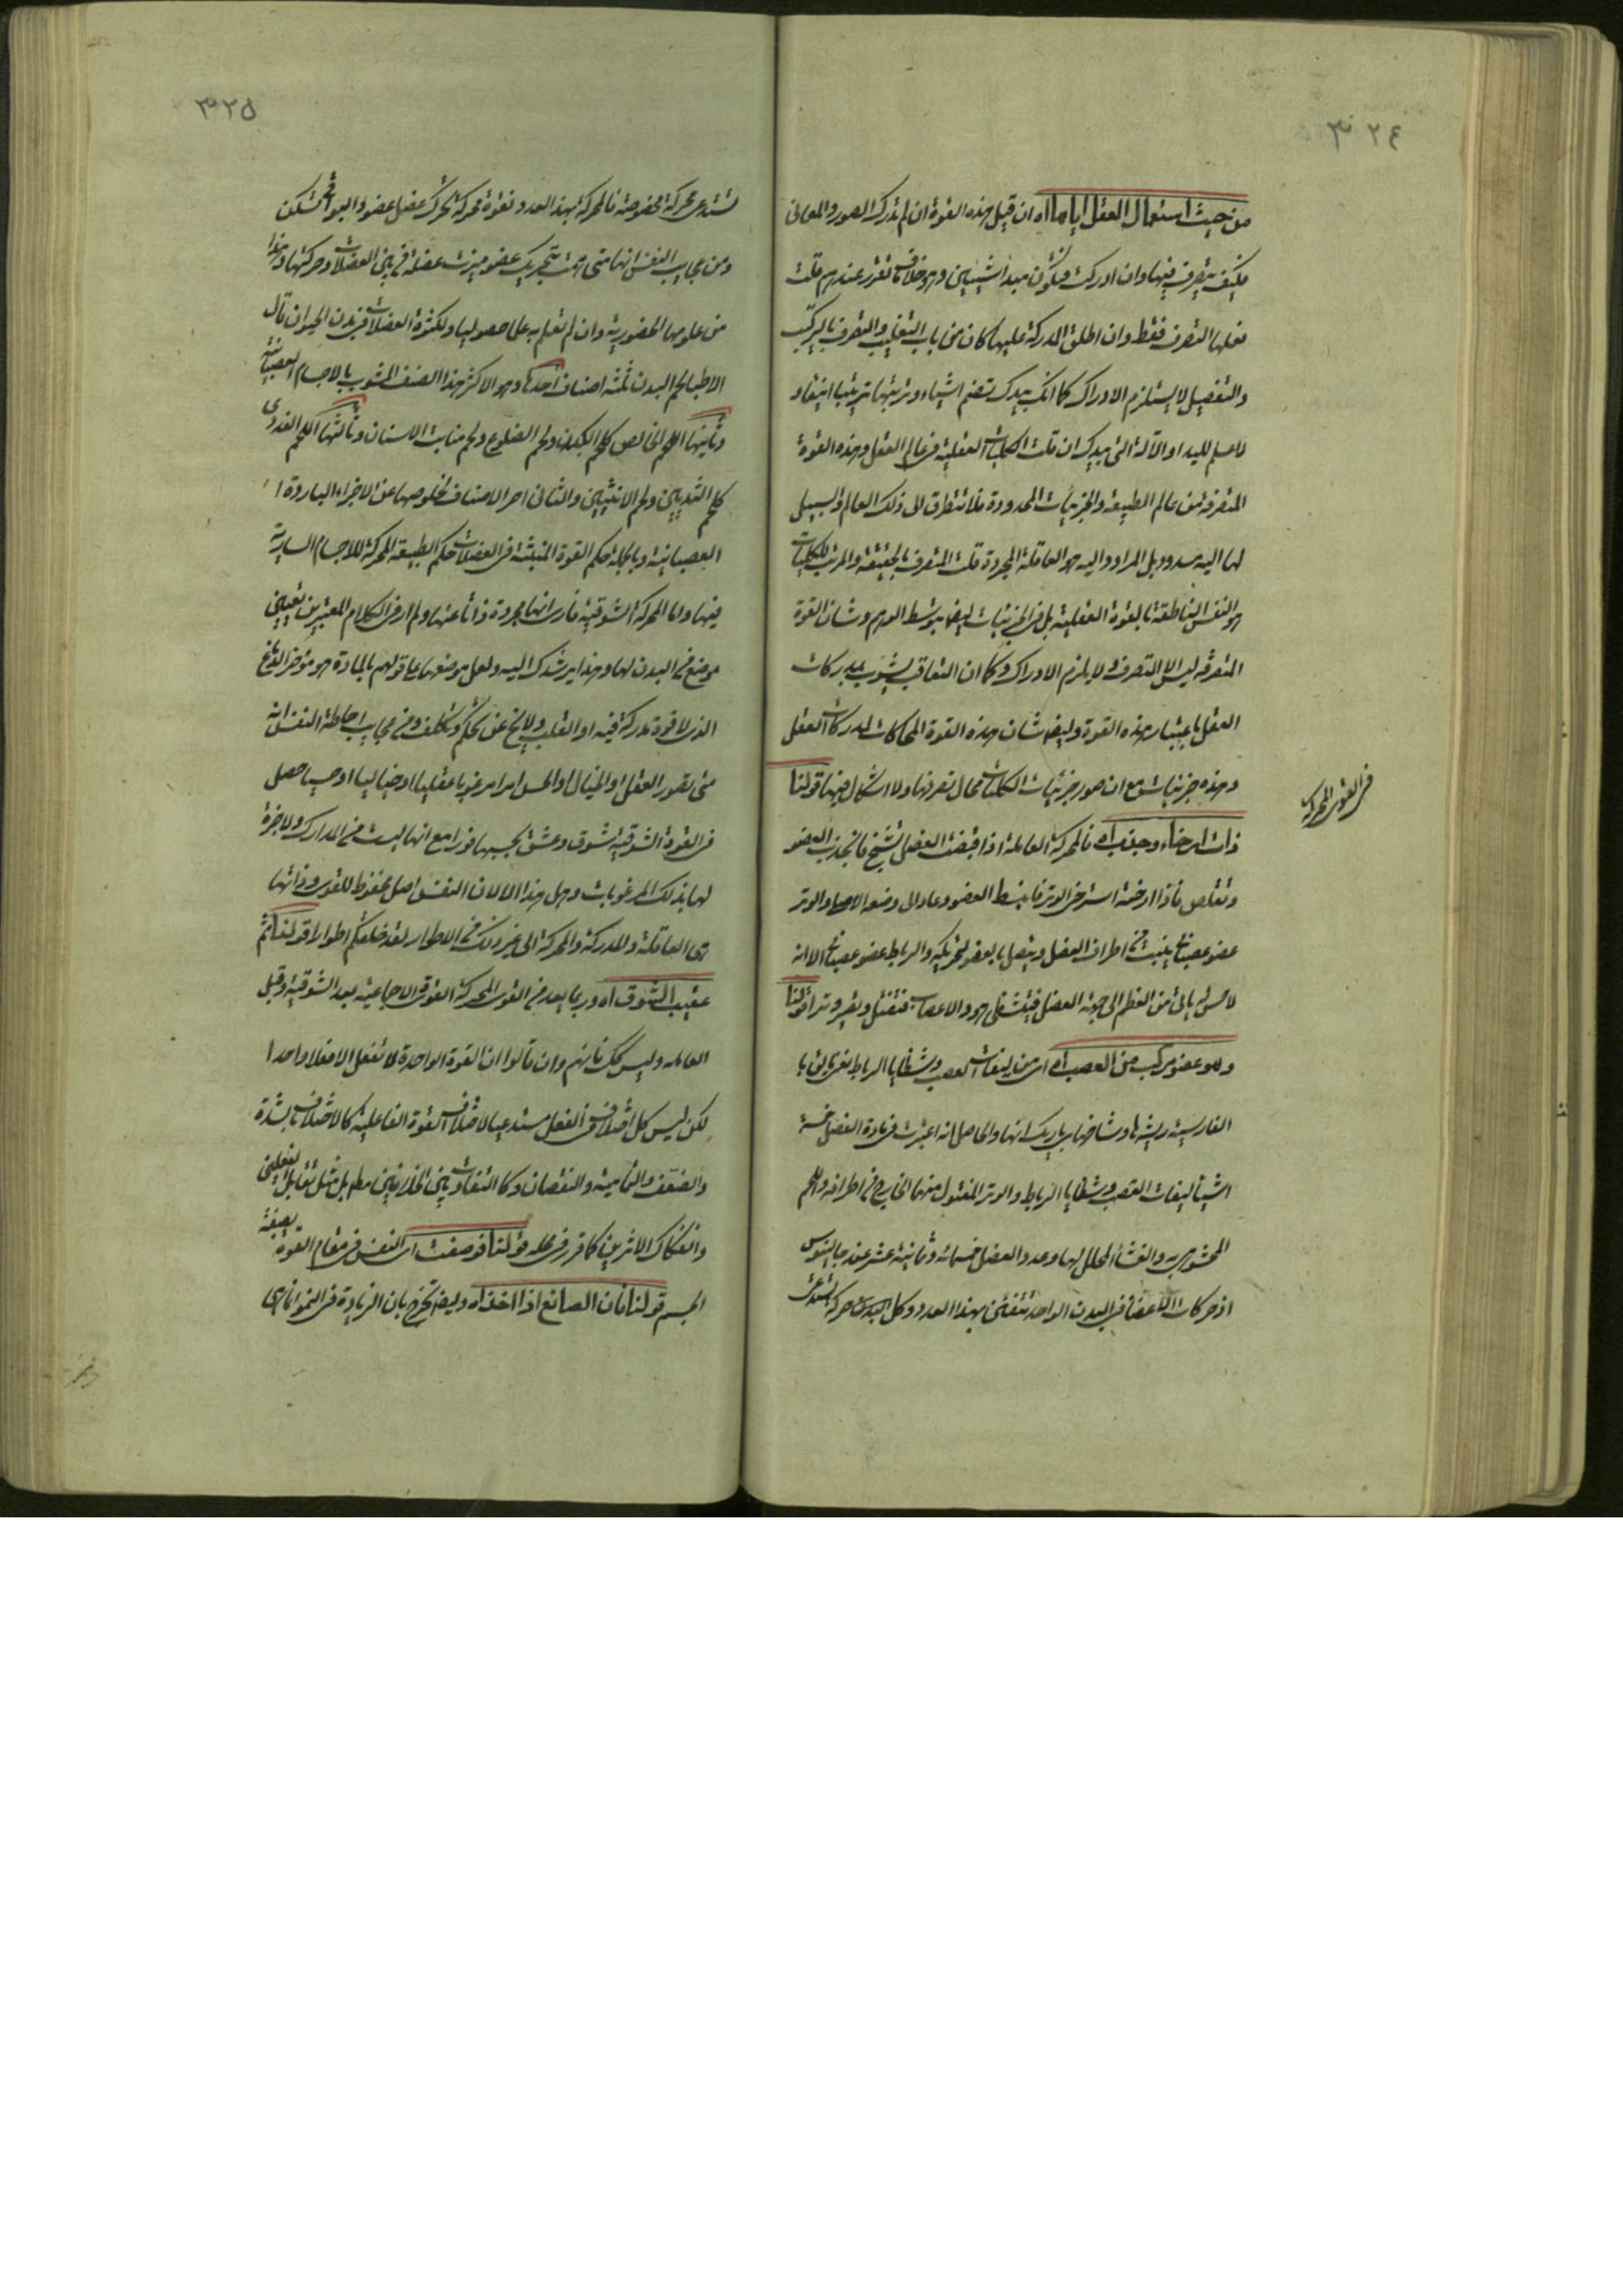 ٣٢٤
من حيث استعمال العقل اياها اه ان قيل هذه القوة ان لم تدرك الصور والمعانى
فكيف يتصرف فيها وان ادركت فيكون مبدا شيئين وهو خلاف ما تقرر عندهم قلت
فعلها التصرف فقط وان اطلق المدركة عليها كان من باب التغليب والتصرف بالتركيب
والتفصيل لا يستلزم الادراك كما انك بيدك تضم اشياء وترتبها ترتيبا انيقا و
لا علم لليد او الآلة التى بيدك ان قلت الكليات العقلية فى عالم العقل وهذه القوة
المتصرفة من عالم الطبيعة والجزئيات المحدودة فلا تتطرق الى ذلك العالم والسبيل
لها اليه مسدود بل المراد واليه هو العاقلة المجردة قلت المتصرف بالحقيقة والمرتب للكليات
هو النفس الناطقة بالقوة العقلية بل فى الجزئيات ايضا بتوسط الوهم وشان القوة
المتصرفة ليس الا التصرف ولا يلزم الادراك وكان التعاقب يشوب مدركات
العقل باعتبار هذه القوة وايضا شان هذه القوة المحاكات لمدركات العقل
وهذه جزئيات مع ان صور جزئيات الكليات محال تصرفها ولا اشكال فيها قولنا
فى القوى المحركة
ذات ارخاء وجذب اه فالمحركة العاملة اذا قبضت العضل تشنج فانجذب العضو
وتقلص فاذا ارخته استرخى الوتر فانبسط العضو وعاد الى وضعه الاصلى والوتر
عضو عصبانى ينبت من اطراف العضل ويتصل بالعضو لتحريكه والرباط عضو عصبانى الا انه
لا حس له ياتى من العظم الى جهة العضل فيتشظى هو والاعصاب فتفتل ويصير وترا قولنا
وهو عضو مركب من العصب اه اى من ليفات العصب وشظايا الرباط يعنى بالفا
الفارسية ريشه ها وشاخهاى باريك انها والحاصل انه اعتبرت فى مادة العضل خمسة
اشياء ليفات العصب وشظايا الرباط والوتر المفتول منهما الخارج من اطرافه واللحم
المحشو به والغشاء المجلل لها وعدد العضل خمسمائة وثمانية عشر عند جالينوس
اذ حركات الاعضاء فى البدن الواحد تتفنن بهذا العدد وكل حركة تستدعى
٣٢٥
تستدعى محركة مخصوصة فالمحركة بهذا العدد فقوة محركة تحرك عضل عضو والبواقى تسكن
ومن عجايب النفس انها متى همت بتحريك عضو ميزت عضله من بين العضلات وحركتها وهذا
من علومها الحضورية وان لم تعلم به علما حصوليا ولكثرة العضلات فى بدن الحيوان قال
الاطباء لحم البدن ثلثة اصناف احدها وهو الاكثر هذا الصنف المشوب بالاجسام العصبانية
وثانيها اللحم الخالص كلحم الكبد ولحم الضلوع ولحم منابت الاسنان وثالثها اللحم الغددى
كلحم الثديين ولحم الانثيين والثانى احر الاصناف لخلوصها عن الاجزاء الباردة
العصبانية وبالجملة حكم القوة المنبثة فى العضلات حكم الطبيعة المحركة للاجسام السارية
فيها واما المحركة الشوقية فارى انها مجردة ذاتا عنها ولم ار فى الكلام المعتبرين تعيين
موضع فى البدن لها وهذا يرشدك اليه ولعل موضعها على قولهم بالمادة هو مؤخر الدماغ
الذى لا قوة مدركة فيه او القلب ولا يخ عن تحكم وتكلف ومن عجايب احاطة النفس انه
متى تصور العقل او الخيال او الحس امرا مرغوبا عقليا او خياليا او حسيا حصل
فى القوة الشوقية شوق وعشق بحسبها فورا مع انها ليست من المدارك ولا خبرة
لها بذلك المرغوبات وهل هذا الا لان النفس اصل محفوظ للقوى وذاتها
هى العاقلة والمدركة والمحركة الى غير ذلك من الاطوار لقد خلقكم اطوارا قولنا ثم
عقيب الشوق اه وربما يعد من القوى المحركة القوة الاجماعية بعد الشوقية وقبل
العاملة وليس كك فانهم وان قالوا ان القوة الواحدة لا تفعل الا فعلا واحدا
لكن ليس كل اختلاف فى الفعل مستدعيا لاختلاف القوة الفاعلية كالاختلاف بالشدة
والضعف والتمامية والنقصان وكالتفاوت بين المتخالفين مطلقا بل مثل تقابل الفعلين
وانفكاك الاثرين كما قرر فى محله قولنا فوصفت اى النفس فى مقام القوة بصفة
الجسم قولنا فان الصانع اذا اخذ اه وايضا تخرج بان الزيادة فى النمو انما هى